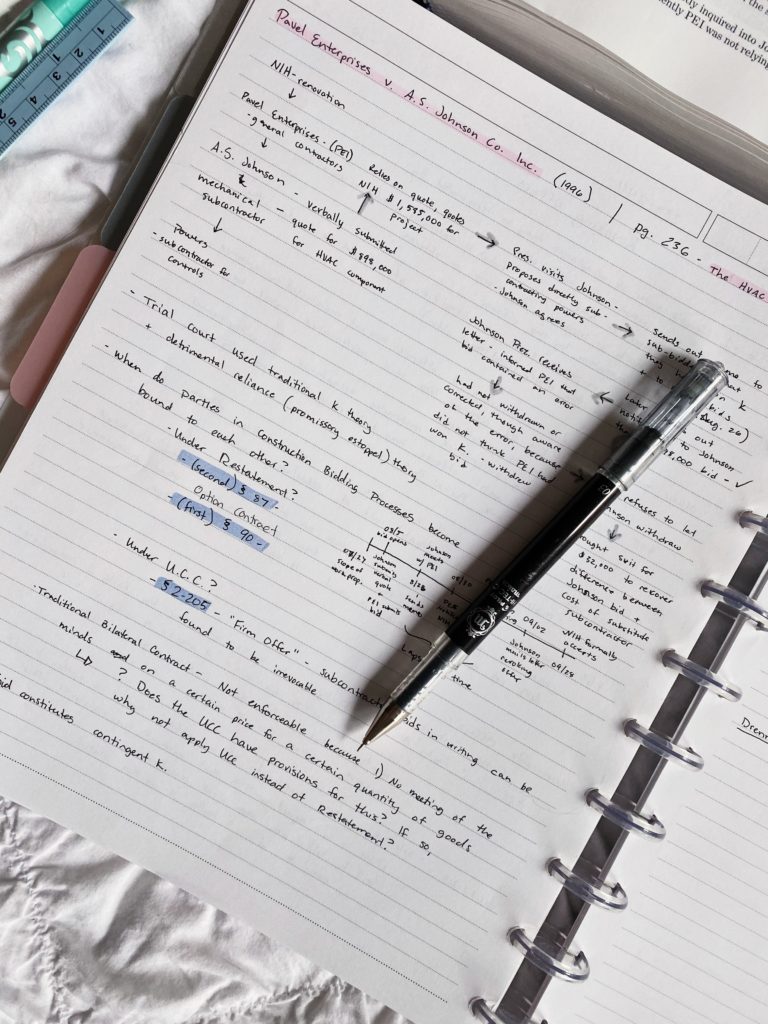 Pavel Enterprises v. A.S. Johnson Co. Inc. (1996) | pg. 236 - The HVAC
NIH-renovation
Pavel Enterprises - (PEI)
- general contractors
A.S. Johnson - verbally submitted
mechanical - quote for $898,000
subcontractor for HVAC component
Powers
- subcontractor for
controls
Relies on quote, quotes
NIH $1,585,000 for
project
Pres. visits Johnson -
proposes directly sub-
contracting powers
- Johnson agrees
sends out
sub-bidd
Johnson Prez. receives
letter - informed PEI that
bid contained an error
had not withdrawn or
corrected, though aware
of the error, because
did not think PEI had
won K. - withdrew
bid
refuses to let
withdraw
suit for
$32,000 to recover
difference between
Johnson bid +
cost of substitute
subcontractor
- Trial court used traditional K theory
+ detrimental reliance (promissory estoppel) theory
- When do parties in Construction Bidding Processes become
bound to each other?
- Under Restatement?
- (second) § 87 -
Option Contract
- (first) § 90 -
- Under U.C.C.?
- § 2-205 - "Firm Offer" - subcontract bids in writing can be
found to be irrevocable
08/5
bid opens
Johnson
meets
w/ PEI
Johnson
submits
verbal
quote
PEI submits
bid
09/02
Johnson
mails letter
revoking
offer
NIH formally
accepts
09/28
time
- Traditional Bilateral Contract - Not enforceable because 1) No meeting of the
minds on a certain price for a certain quantity of goods
? Does the UCC have provisions for this? If so,
why not apply UCC instead of Restatement?
constitutes contingent K.
inquired into
PEI was not relying